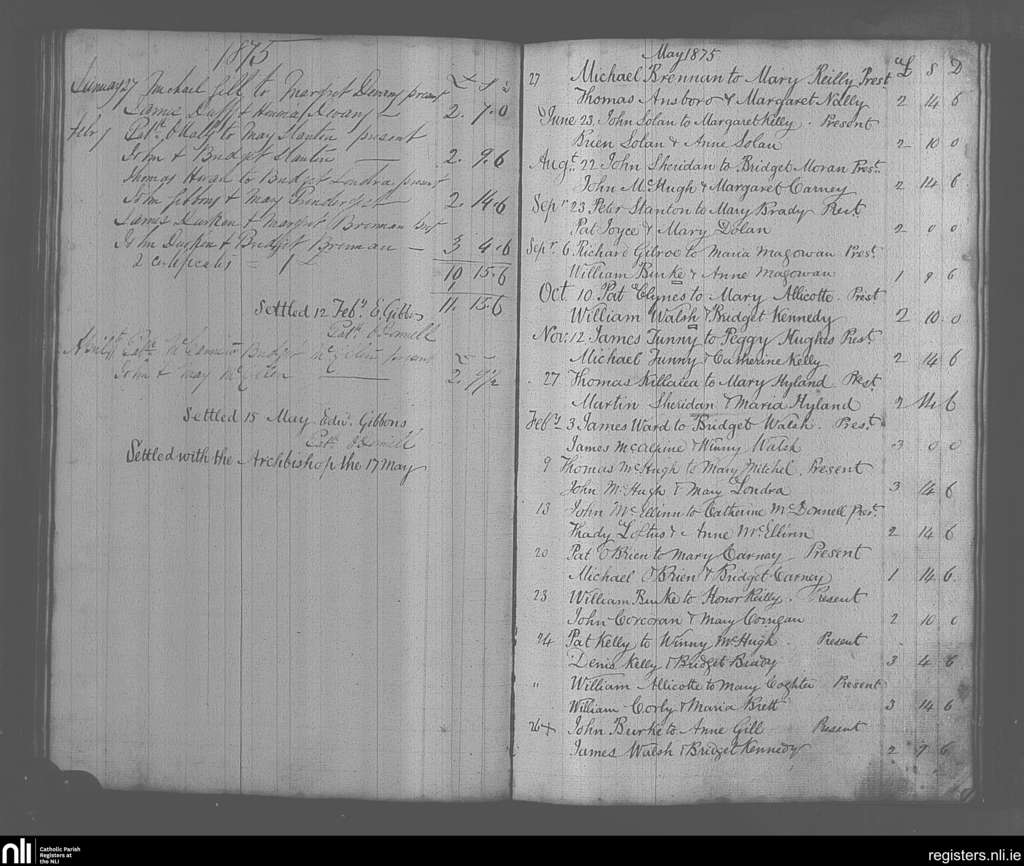 1875
January 27 Michael Gill to Margret present £ S D
2. 7. 0
Feby 1 Patk. to May Stanton present
John & Bridget Stanton 2. 9. 6
Thomas to Bridget Londra present
John Gibbons & May Prendergast 2. 14. 6
James Durken & Margret Brennan
John Durken & Bridget Brennan 3 4. 6
2 = 1
10 15. 6
1
Settled 12 Feby. E. Gibbons 11. 15. 6
Patk O'Donnell
April Bridget present
John & May 2.
Settled 15 May Edw. Gibbons
Patk O'Donnell
Settled with the Archbishop the 17 May
May 1875
£ S D
27 Michael Brennan to Mary Reilly Prest
Thomas Ansboro & Margaret Nally 2 14 6
June 23 John Solan to Margaret Kelly. Present
Brien Solan & Anne Solan 2 10 0
Augt. 22 John Sheridan to Bridget Moran Prest.
John McHugh & Margaret Carney 2 14 6
Sepr 23 Peter Stanton to Mary Brady
Pat Joyce & Mary Dolan 2 0 0
Sepr. 6 Richard Gilroe to Maria Magowan Prest.
William Burke & Anne Magowan 1 9 6
Oct. 10 Pat Clynes to Mary Allicotte. Prest
William Walsh & Bridget Kennedy 2 10 0
Nov. 12 James Funny to Peggy Hughes Prest.
Michael Funny & Catherine Kelly 2 14 6
27 Thomas Killatea to Mary Hyland Prest.
Martin Sheridan & Maria Hyland 2 14 6
Feby 3 James Ward to Bridget Walsh. Prest.
James McAlpine & Winny Walsh 3 0 0
9 Thomas McHugh to Mary Mitchel. Present
John McHugh & Mary Londra 3 14 6
13 John McEllinn to Catherine McDonnell Prest.
Thady Loftus & Anne McEllinn 2 14 6
20 Pat O'Brien to Mary Carney Present
Michael O'Brien & Bridget Carney 1 14 6
23 William Burke to Honor Reilly. Present
John Corcoran & Mary Corrigan 2 10 0
24 Pat Kelly to Winny McHugh Present
Denis Kelly & Bridget Brady 3 4 6
" William Allicotte to Mary Present
William Corly & Maria Brett 3 14 6
26 John Burke to Anne Gill Present
James Walsh & Bridget Kennedy 2 9 6
nli Catholic Parish Registers at the NLI
registers.nli.ie